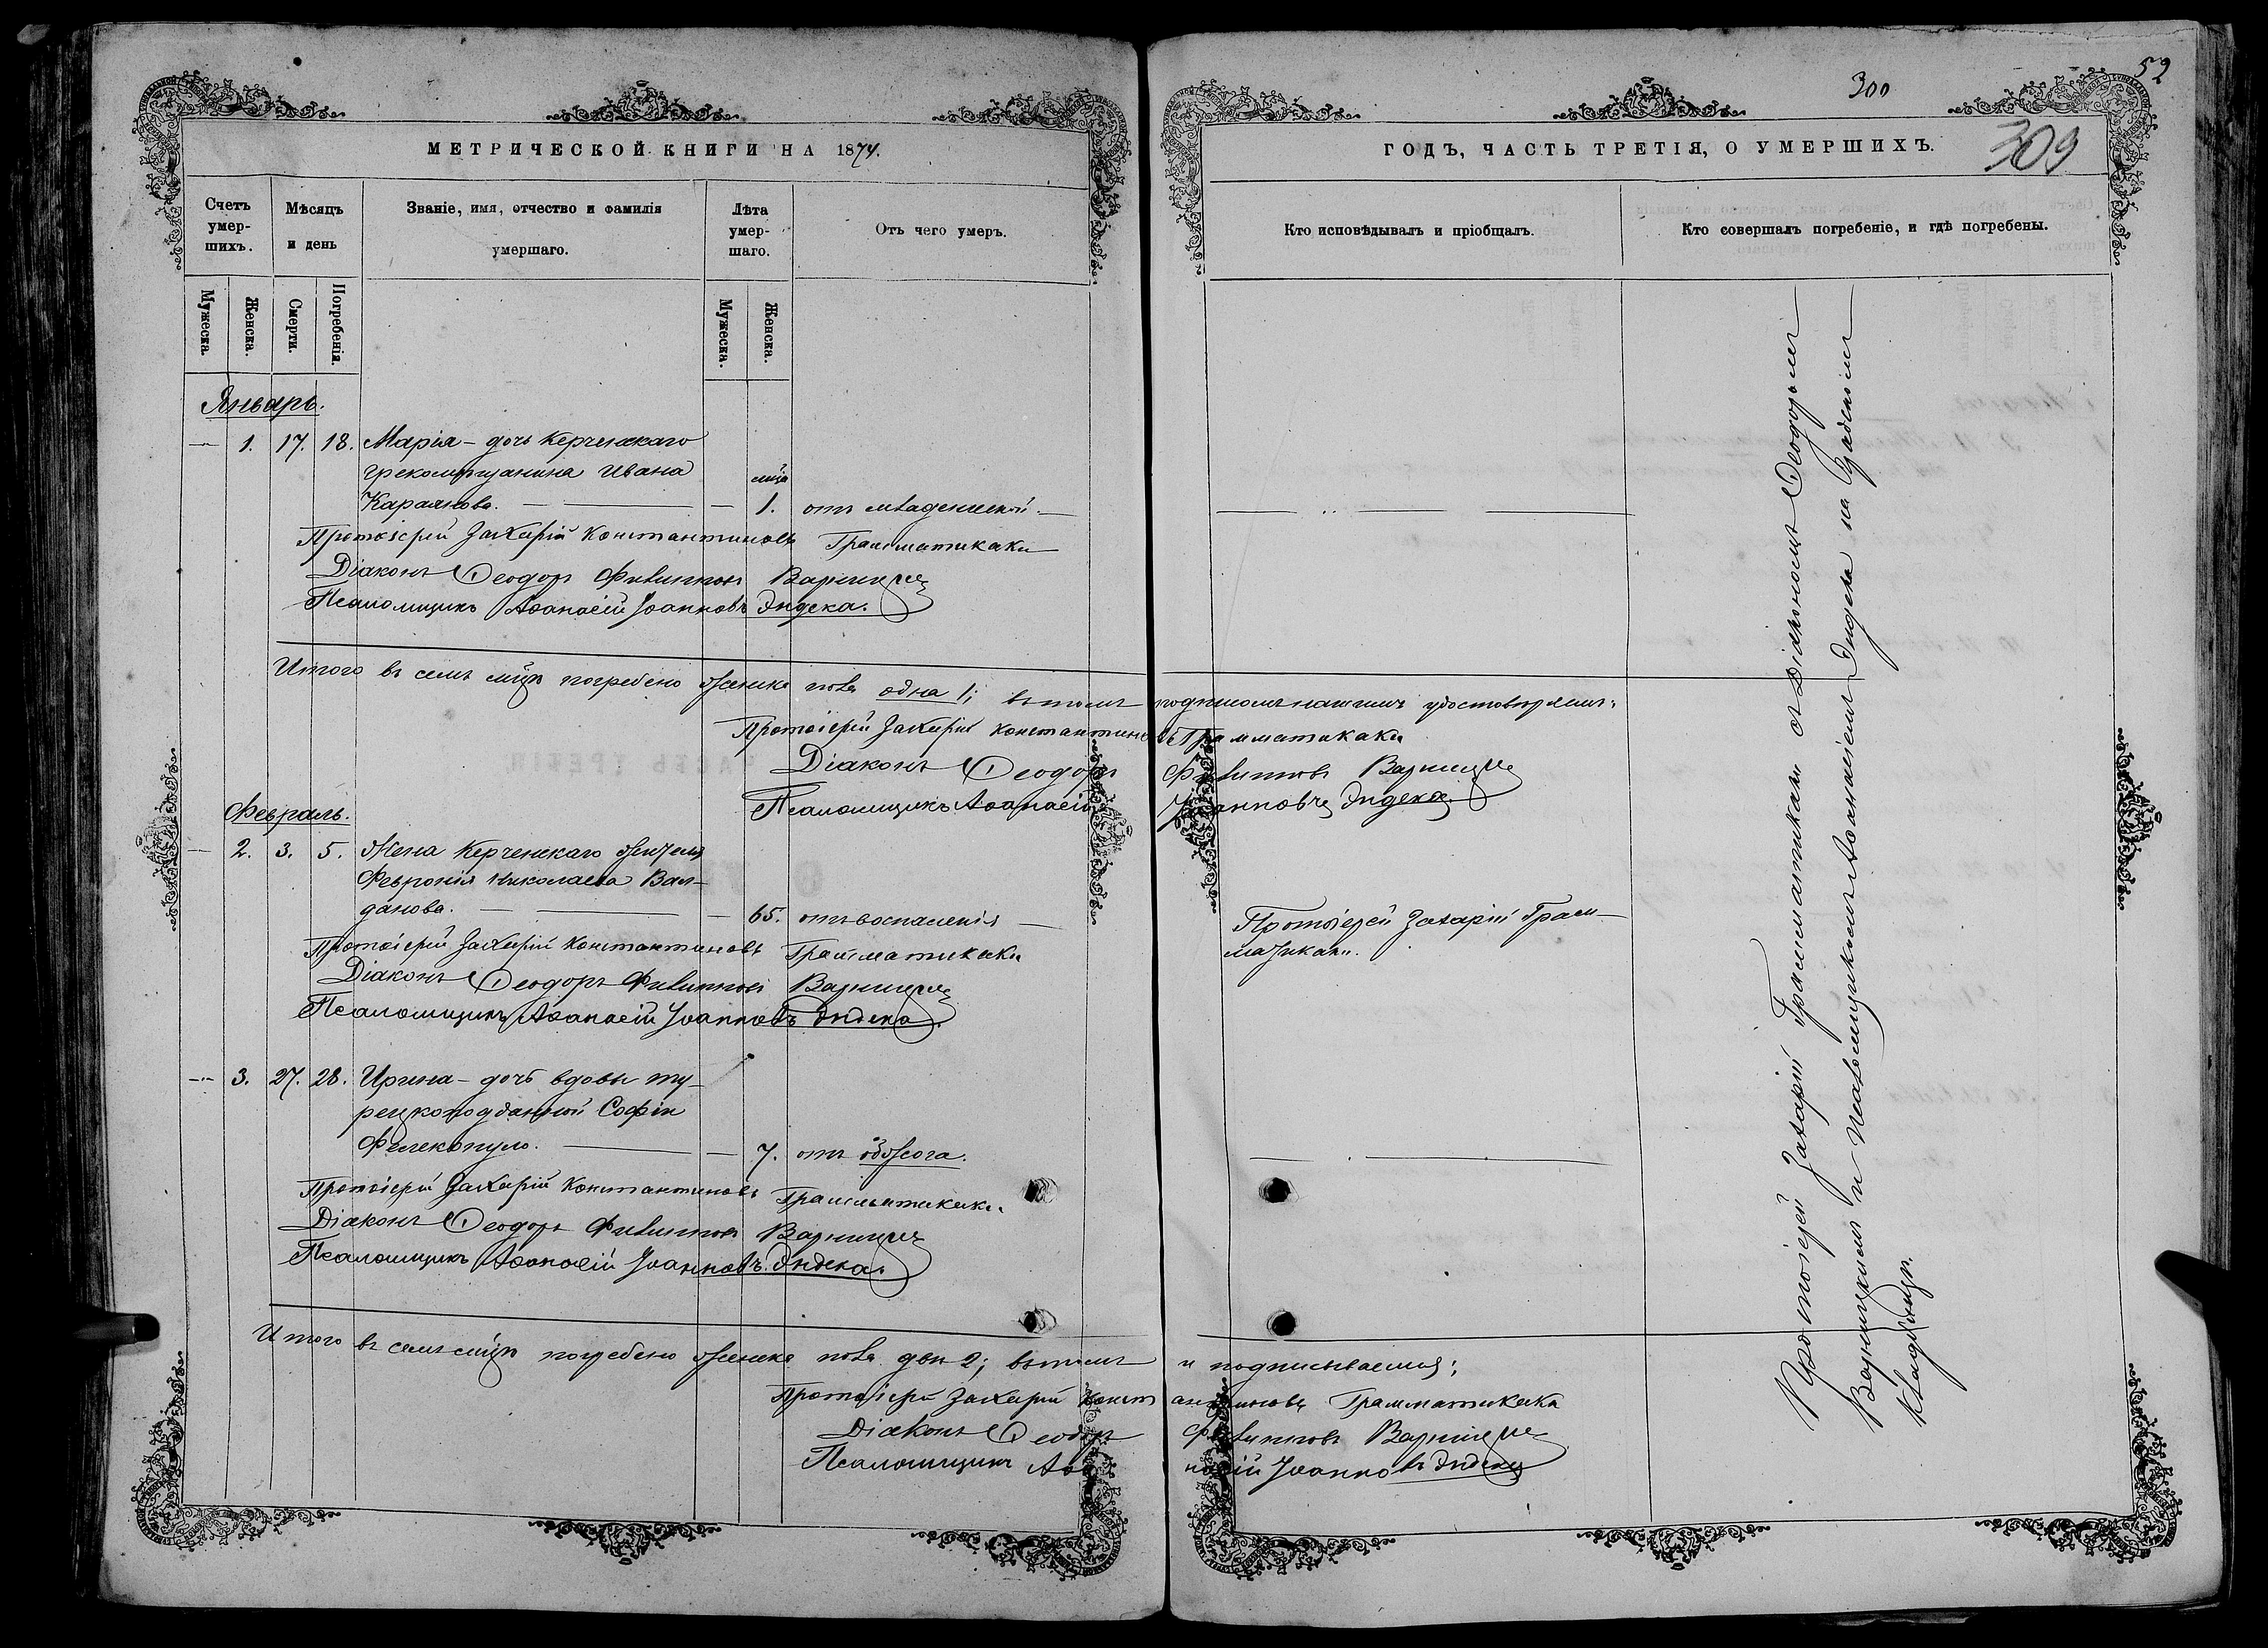 МЕТРИЧЕСКОЙ КНИГИ НА 1874.
Счетъ умер-шихъ.
Мѣсяцъ и день
Званіе, имя, отчество и фамилія умершаго.
Лѣта умер-шаго.
Отъ чего умеръ.
Мужеска.
Женска.
Смерти.
Погребенія.
Мужеска.
Женска.
Январь.
1. 17. 18. Марія – дочь Керченскаго
грекомѣщанина Ивана
мѣсяца
Караянова. 1. отъ младенческой.
Протоіерей Захарій Константиновъ Грамматикаки
Діаконъ Ѳеодоръ Филипповъ Варницкій
Псаломщикъ Аѳанасій Іоанновъ Эндека.
Итого въ семъ мѣсяцѣ погребено женска пола одна 1; въ томъ подписомъ нашимъ удостовѣряемъ:
Протоіерей Захарій Константиновъ Грамматикаки
Діаконъ Ѳеодоръ Филипповъ Варницкій
Псаломщикъ Аѳанасій Іоанновъ Эндека.
Февраль.
2. 3. 5. Жена Керченскаго жителя
Февронія Николаева Вал-
данова. 65. отъ воспаленія
Протоіерей Захарій Константиновъ Грамматикаки
Діаконъ Ѳеодоръ Филипповъ Варницкій
Псаломщикъ Аѳанасій Іоанновъ Эндека.
3. 27. 28. Ирина – дочь вдовы ту-
рецкоподданной Софіи
Филекопуло. 7. отъ обжога.
Протоіерей Захарій Константиновъ Грамматикаки
Діаконъ Ѳеодоръ Филипповъ Варницкій
Псаломщикъ Аѳанасій Іоанновъ Эндека.
Итого въ семъ мѣсяцѣ погребено женска пола двѣ 2; въ томъ и подписываемся:
Протоіерей Захарій Константиновъ Грамматикаки
Діаконъ Ѳеодоръ Филипповъ Варницкій
Псаломщикъ Аѳанасій Іоанновъ Эндека
52
300
309
ГОДЪ, ЧАСТЬ ТРЕТІЯ, О УМЕРШИХЪ.
Кто исповѣдывалъ и пріобщалъ.
Кто совершалъ погребеніе, и гдѣ погребены.
Протоіерей Захарій Грам-
матикаки.
Протоіерей Захарій Грамматикаки съ Діакономъ Ѳеодоромъ
Варницкимъ и Псаломщикомъ Аѳанасіемъ Эндека на Градскомъ
кладбищѣ.